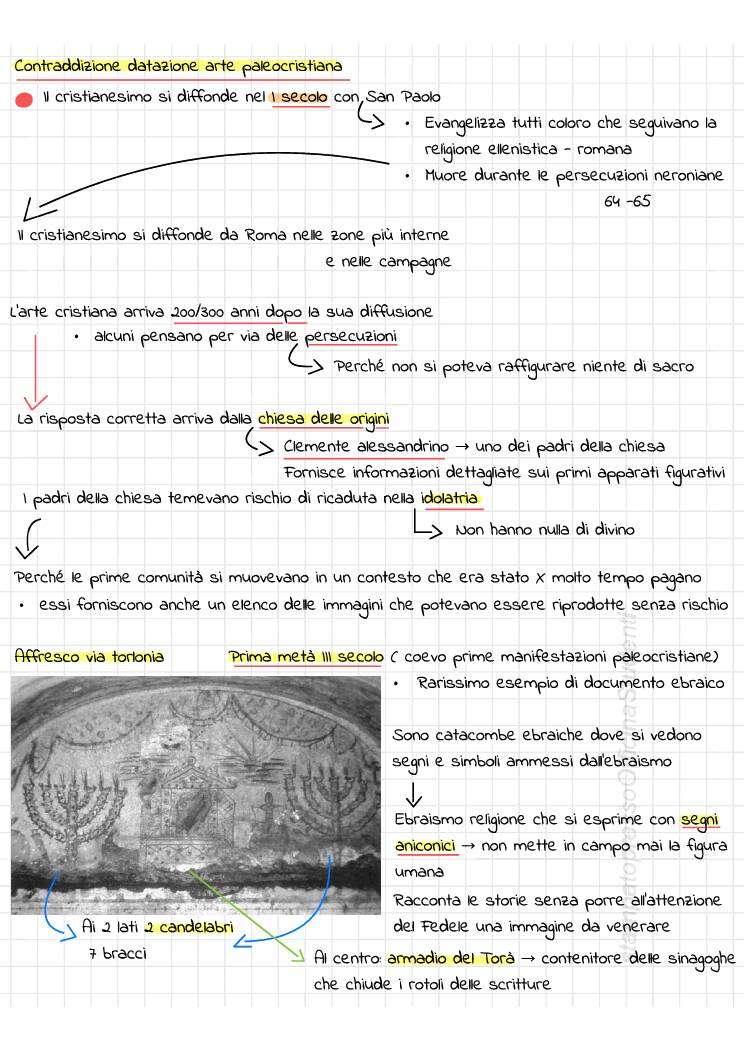 Contraddizione datazione arte paleocristiana
Il cristianesimo si diffonde nel I secolo con San Paolo
• Evangelizza tutti coloro che seguivano la
religione ellenistica - romana
• Muore durante le persecuzioni neroniane
64 -65
Il cristianesimo si diffonde da Roma nelle zone più interne
e nelle campagne
L'arte cristiana arriva 200/300 anni dopo la sua diffusione
• alcuni pensano per via delle persecuzioni
Perché non si poteva raffigurare niente di sacro
La risposta corretta arriva dalla chiesa delle origini
Clemente alessandrino → uno dei padri della chiesa
Fornisce informazioni dettagliate sui primi apparati figurativi
I padri della chiesa temevano rischio di ricaduta nella idolatria
Non hanno nulla di divino
Perché le prime comunità si muovevano in un contesto che era stato x molto tempo pagano
• essi forniscono anche un elenco delle immagini che potevano essere riprodotte senza rischio
Affresco via torlonia Prima metà III secolo ( coevo prime manifestazioni paleocristiane)
• Rarissimo esempio di documento ebraico
Sono catacombe ebraiche dove si vedono
segni e simboli ammessi dall'ebraismo
Ebraismo religione che si esprime con segni
aniconici → non mette in campo mai la figura
umana
Racconta le storie senza porre all'attenzione
del Fedele una immagine da venerare
Ai 2 lati 2 candelabri
7 bracci
Al centro: armadio del Torà → contenitore delle sinagoghe
che chiude i rotoli delle scritture